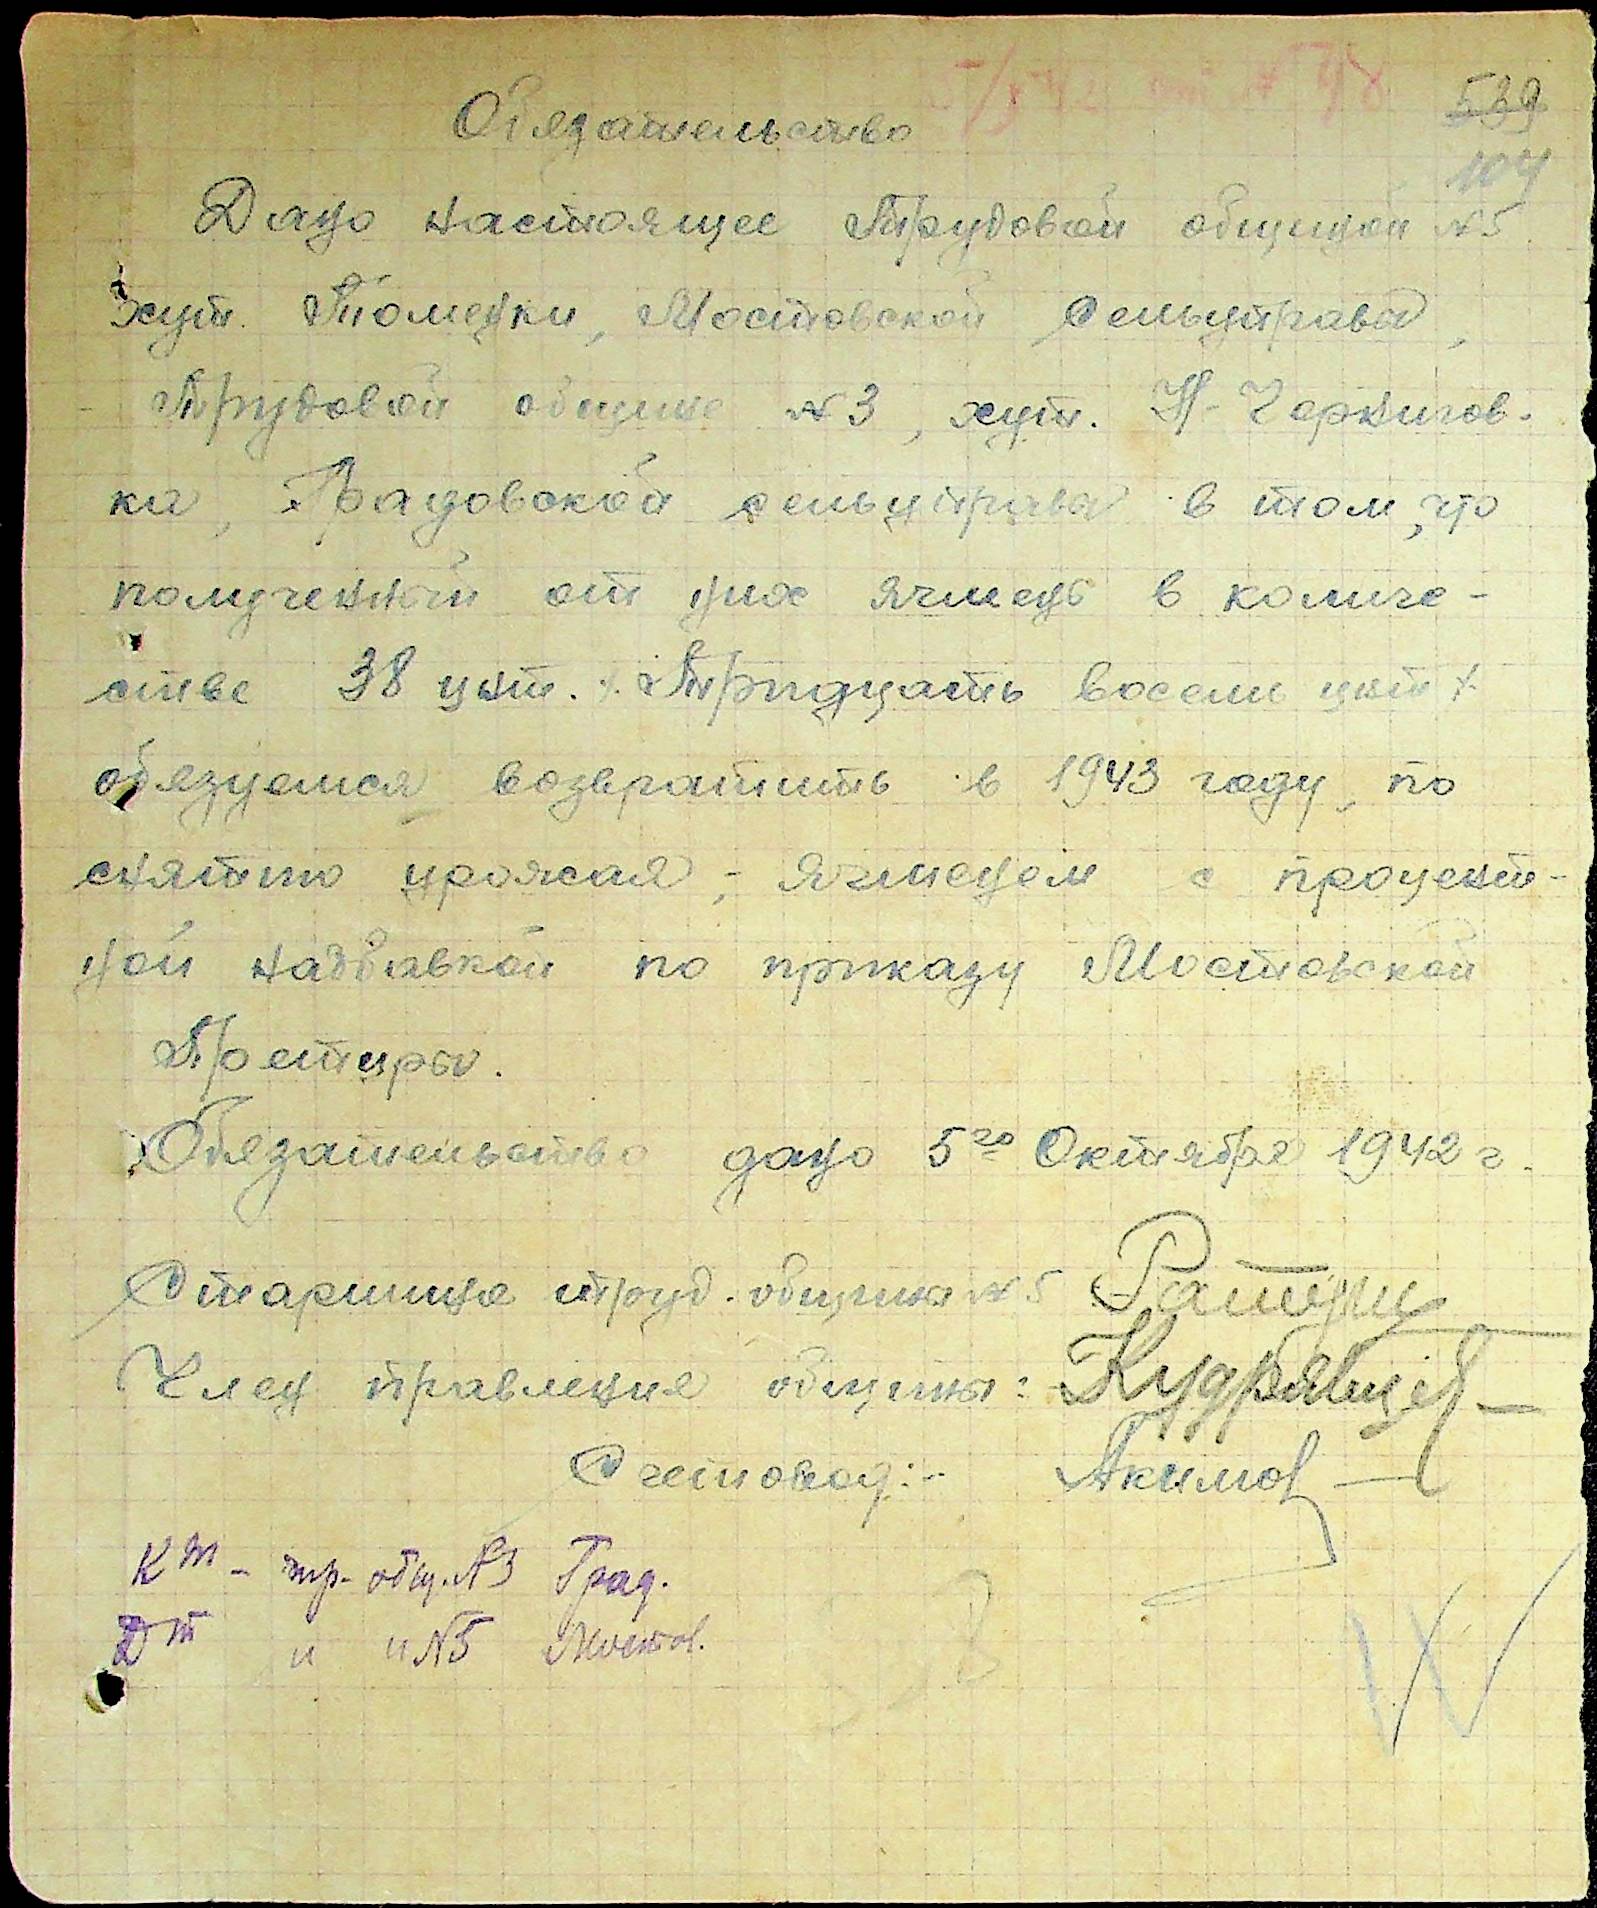 539
104
Обязательство
Дано настоящее Трудовой общиной №5
хут. Поменки, Мостовской Сельуправы,
Трудовой общине №3, хут. Н-Чернигов-
ка, Градовской сельуправы в том, что
полученный от них ячмень в количе-
стве 38 цнт. /. Тридцать восемь цнт /.
обязуемся возвратить в 1943 году, по
снятию урожая, - ячменем с процент-
ной надбавкой по приказу Мостовской
Претуры.
Обязательство дано 5го Октября 1942 г.
Старшина труд. общины №5
Член правления общины: Кудрявцев
Счетовод:- Акимов
Кт - тр. общ. №3 Град.
Дт " " №5 Мостов.